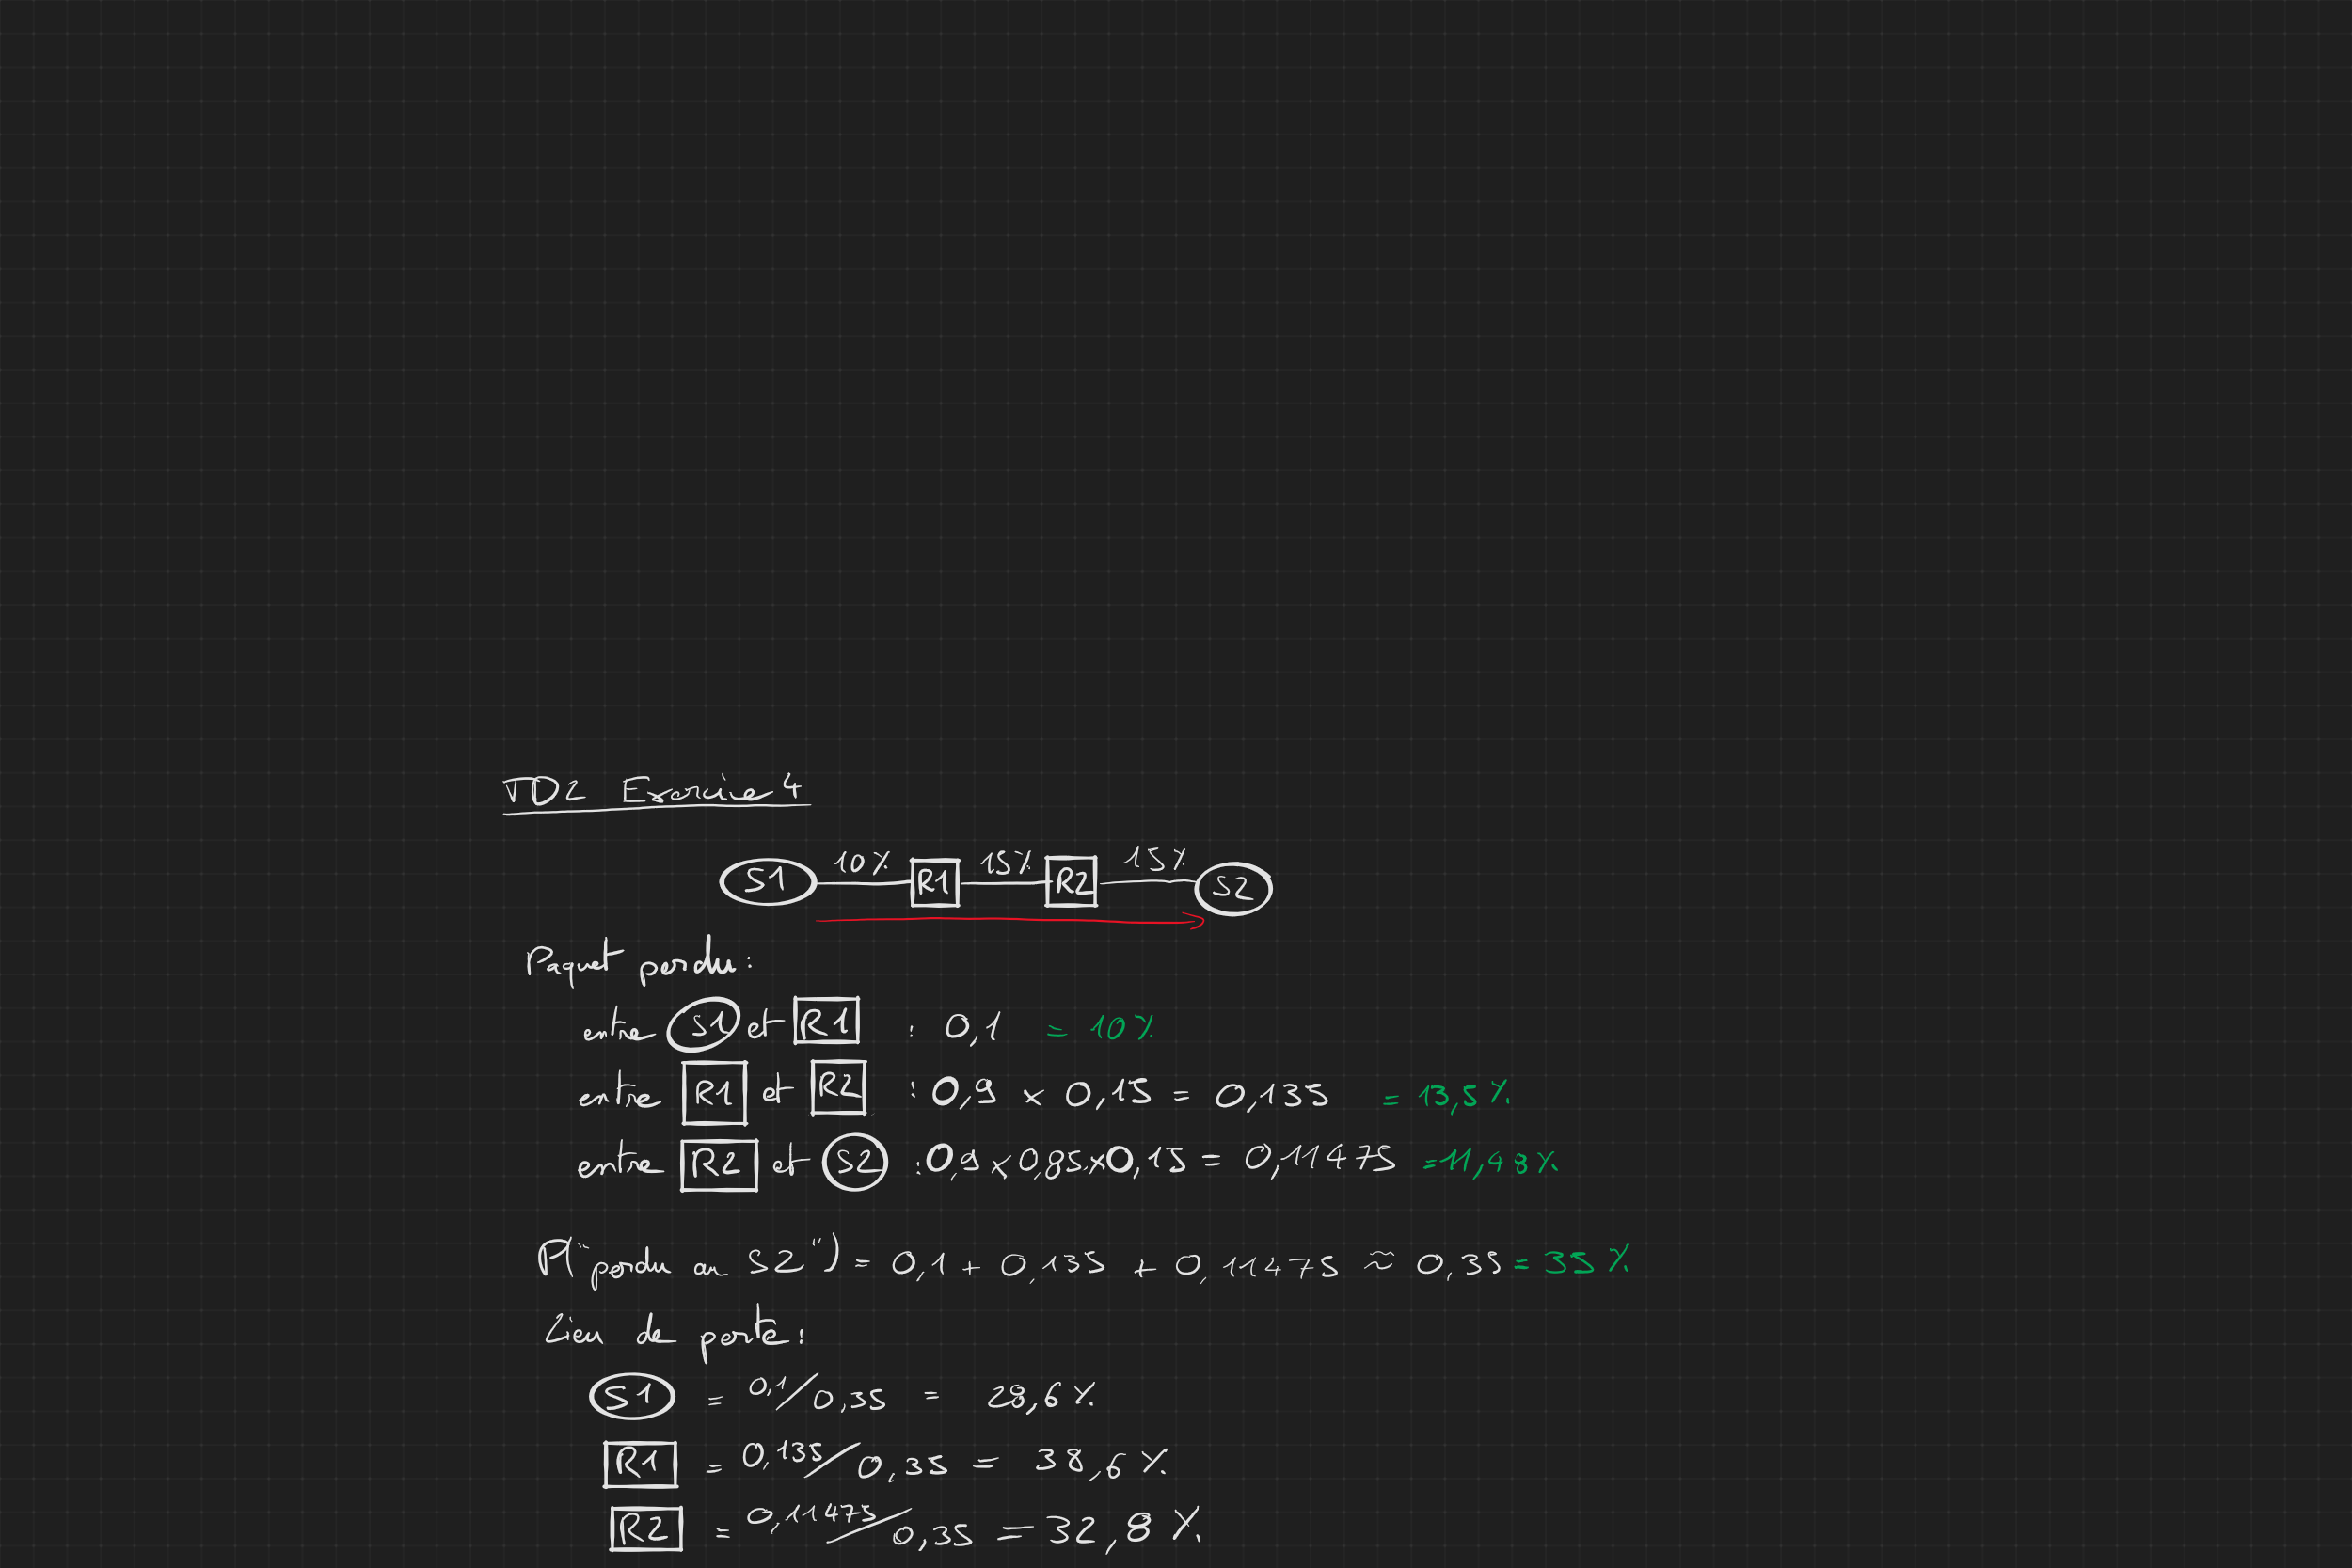 TD2 Exercice 4
S1 10% R1 15% R2 15% S2
Paquet perdu:
entre S1 et R1 : 0,1 = 10%
entre R1 et R2 : 0,9 x 0,15 = 0,135 = 13,5%
entre R2 et S2 : 0,9 x 0,85 x 0,15 = 0,11475 = 11,48%
P("perdu au S2") = 0,1 + 0,135 + 0,11475 ≈ 0,35 = 35%
Lieu de perte:
S1 = 0,1/0,35 = 28,6%
R1 = 0,135/0,35 = 38,6%
R2 = 0,11475/0,35 = 32,8%